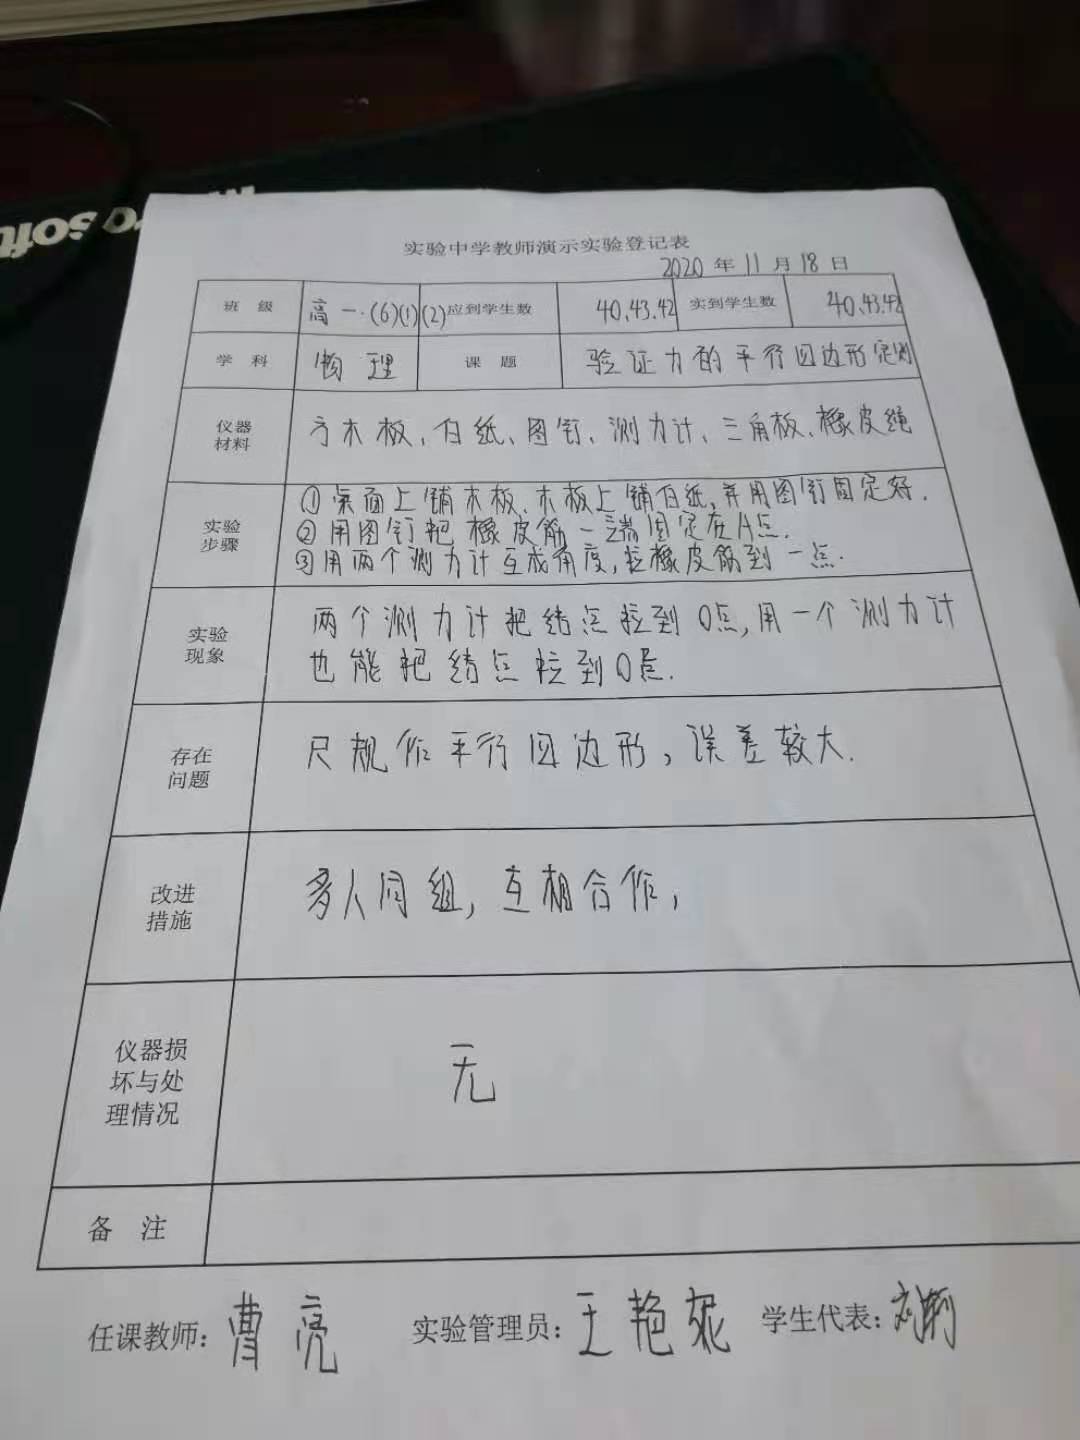 soft
实验中学教师演示实验登记表
2020 年 11 月 18 日
班 级 高一.(6)(1)(2) 应到学生数 40、43.42 实到学生数 40、43.42
学 科 物理 课 题 验证力的平行四边形定则
仪器
材料
方木板、白纸、图钉、测力计、三角板、橡皮绳
实验
步骤
①桌面上铺木板、木板上铺白纸,并用图钉固定好.
②用图钉把橡皮筋一端固定在A点.
③用两个测力计互成角度,拉橡皮筋到一点.
实验
现象
两个测力计把结点拉到O点,用一个测力计
也能把结点拉到O点.
存在
问题
尺规作平行四边形,误差较大.
改进
措施
多人同组,互相合作,
仪器损
坏与处
理情况
无
备 注
任课教师:曹亮 实验管理员:王艳 学生代表:刘